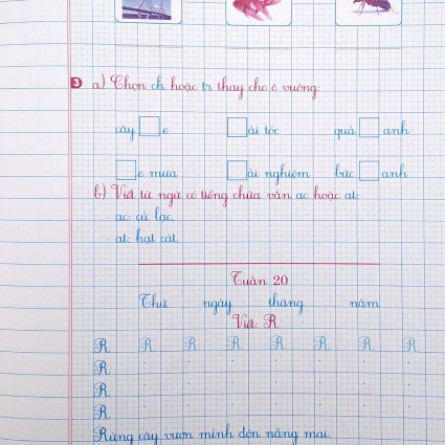 3 a) Chọn ch hoặc tr thay cho ô vuông:
cây □e □ải tóc quả □anh
□e mưa □ải nghiệm bức □anh
b) Viết từ ngữ có tiếng chứa vần ac hoặc at:
ac: củ lạc,
at: hạt cát,
Tuần 20
Thứ ngày tháng năm
Viết: R
R R R R R R R R
R
R
R
Rừng cây vươn mình đón nắng mai.